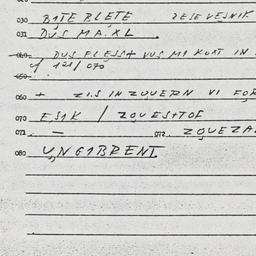 030 BITE BLETE RESE VESNIK
031 DUS MA.XL
040 DUS FLESS+ VUS MA KOAT IN
4/ 121/070
050
060 + Z.I.S IN ZQUERN VI FOR
070 ESIK / ZQUES+TOF
071 — 072. ZQUEZA
080 UNGIBRENT